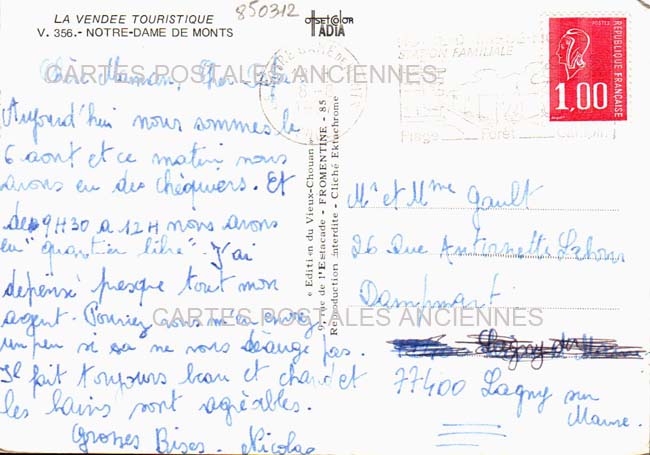 LA VENDEE TOURISTIQUE
V. 356.- NOTRE-DAME DE MONTS
850312
OFFSET COLOR
TADIA
CARTES POSTALES ANCIENNES
Chère Maman, Cher
Aujourd'hui nous sommes le
6 aout et ce matin nous
avons eu des chéquiers. Et
de 9H30 a 12H nous avons
eu "quartier libre". J'ai
depensé presque tout mon
argent. Pourriez vous m'en envoyer
un peu si sa ne vous dérange pas.
Il fait toujours beau et chaud et
les bains sont agréables.
Grosses Bises. Nicolas
« Edition du Vieux-Chouan »
9, rue de l'Estacade - FROMENTINE - 85
Reproduction Interdite - Cliché Ektachrome
STATION FAMILIALE
Plage Forêt Camping
POSTES
REPUBLIQUE FRANÇAISE
1,00
Mr et Mme Gault
26 Rue Antoinette
Dampmart
CARTES POSTALES ANCIENNES
Lagny
77400 Lagny sur
Marne.